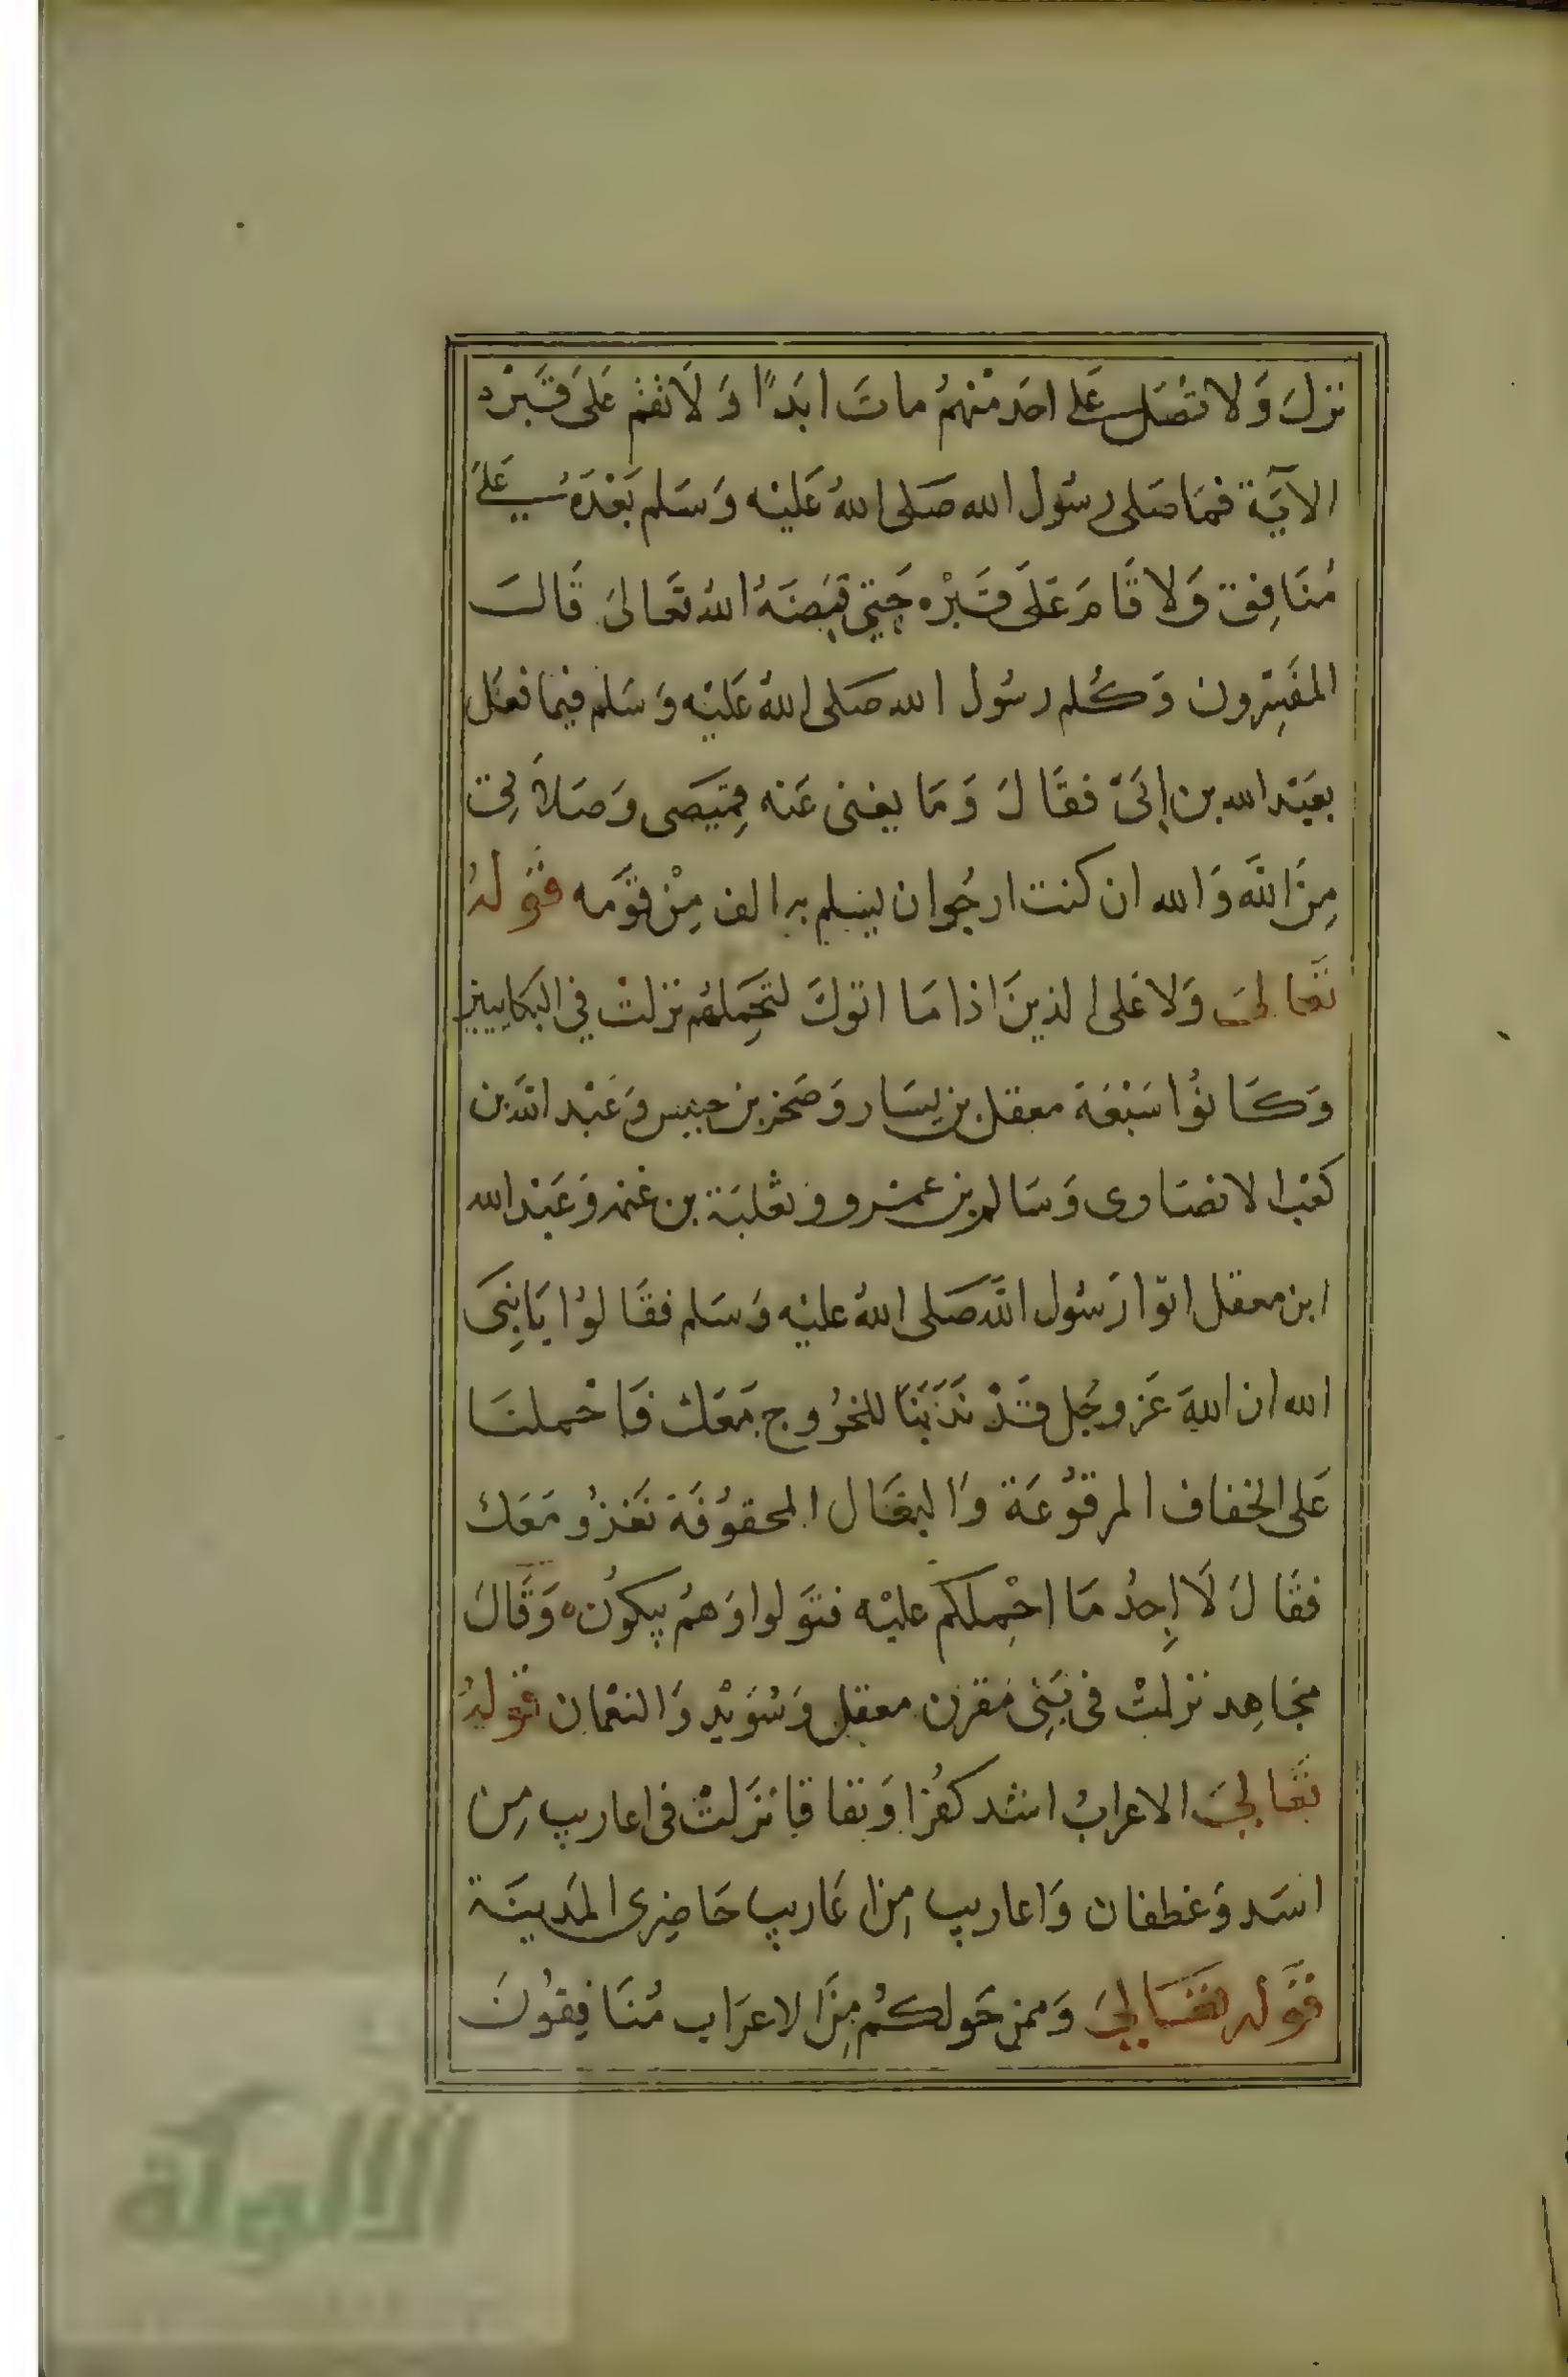 نزلَ وَلا تصَل عَلى احَد مْنهمُ ماتَ ابَدًا وَلَا تقم عَلىَ قَبَرْه
الآيَة فمَا صَلى رسُول الله صَلى اللهُ عَليْه وَسَلم بَعْدَهُ عَلى
مُنَافِق وَلا قَامَ عَلىَ قَبَرْه حَتي قبَضَهُ اللهُ تعَالىَ قَالَـ
المفَسِرون وَكُلم رسُول الله صَلى اللهُ عَليْه وَسَلم فيما فعَل
بعَبْد الله بن ابَىّ فقَالَ وَمَا يغنى عَنه قمَيصَى وَصَلاَ تِى
مِنَ اللَّه وَالله ان كنت ارجُوا ان يسلم به الف مِنْ قوَمه قَولهُ
تعَالىَ وَلا عَلى الذينَ اذا مَا اتوكَ لتحَملهُم نزلتْ في البَكايين
وَكَانوُا سَبْعَة معقل بن يسَار وَصَخر بن حبيس وَعَبْد اللَّه بن
كعَب الانصَاوى وَسَالم بن عمْرو وثعْلبَة بن غنمه وَعَبْد الله
ابن معقل اتوا رَسُول اللَّه صَلى اللهُ عليْه وَسَلم فقَالوُا يَا نبِىَ
الله ان اللهَ عَز وجَل قَدْ نَدَبَنَا للخرُوج مَعَكْ فَاحْملنَا
عَلى الخفاف المرقوُعَة وَالبغَال المحقوُفَة نَغزوُ مَعَكْ
فقَالَ لَا اجِدُ مَا احْمِلكم عليْه فتَولوا وَهمُ يبكوُن ه وَقَالَ
مجَاهِد نزلتْ فى بَنِى مَقرن معقل وَسُوَيْد وَالنعْمان قَولهُ
تعَالىَ الاعرابُ اشد كفُرًا وَنفاقا نَزَلتْ فى اعاريب مِن
اسَد وَغطفان وَاعاريب مِن اعَاريب حَاضِرى المَدينَة
قَوله تعَالىَ وَممن حَولكُم مِنَ الاعرَاب مُنَافِقوُنَ
الألوكة